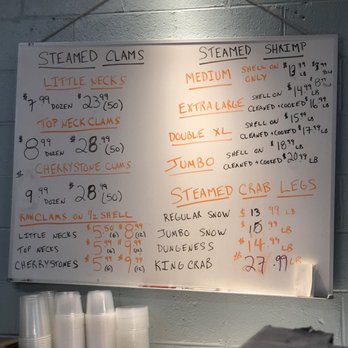 STEAMED CLAMS
LITTLE NECKS
$7.99 DOZEN $23.99 (50)
TOP NECK CLAMS
$8.99 DOZEN $28.99 (50)
CHERRYSTONE CLAMS
9.99 DOZEN $28.99 (50)
RAW CLAMS ON 1/2 SHELL
LITTLE NECKS $5.50 (6) $8.99 (12)
TOP NECKS $5.99 (6) $9.99
CHERRYSTONES $5.99 (6) $9.99 (12)
STEAMED SHRIMP
MEDIUM SHELL ON ONLY $13.99 LB
EXTRA LARGE SHELL ON $14.99 LB
CLEANED + COOKED $16.99 LB
DOUBLE XL SHELL ON $15.99 LB
CLEANED + COOKED $17.99 LB
JUMBO SHELL ON $18.99 LB
CLEANED + COOKED $20.99 LB
STEAMED CRAB LEGS
REGULAR SNOW $13.99 LB
JUMBO SNOW $ .99 LB
DUNGENESS $14.99 LB
KING CRAB $27.99 LB